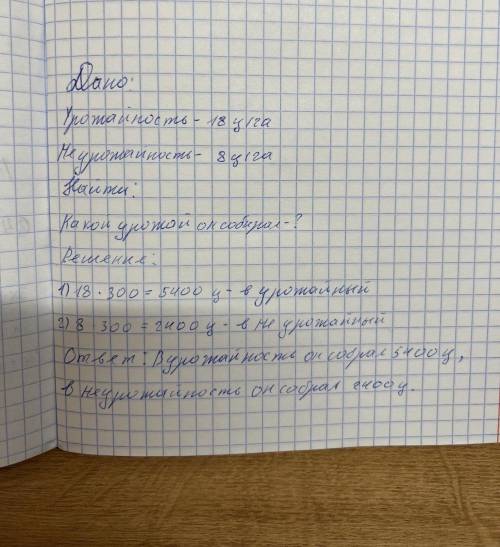 Дано:
Урожайность - 18 ц/га
Неурожайность - 8 ц/га
Найти:
Какой урожай он собирал - ?
Решение:
1) 18 · 300 = 5400 ц - в урожайный
2) 8 · 300 = 2400 ц - в не урожайный
Ответ: В урожайность он собрал 5400 ц,
в неурожайность он собрал 2400 ц.